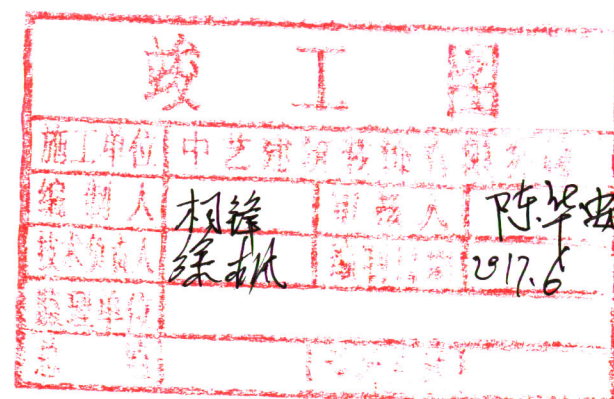 竣工图
施工单位 中艺建筑装饰有限公司
编制人 相锋 审核人 陈华安
技术负责人 徐 编制日期 2017.6
监理单位
总监